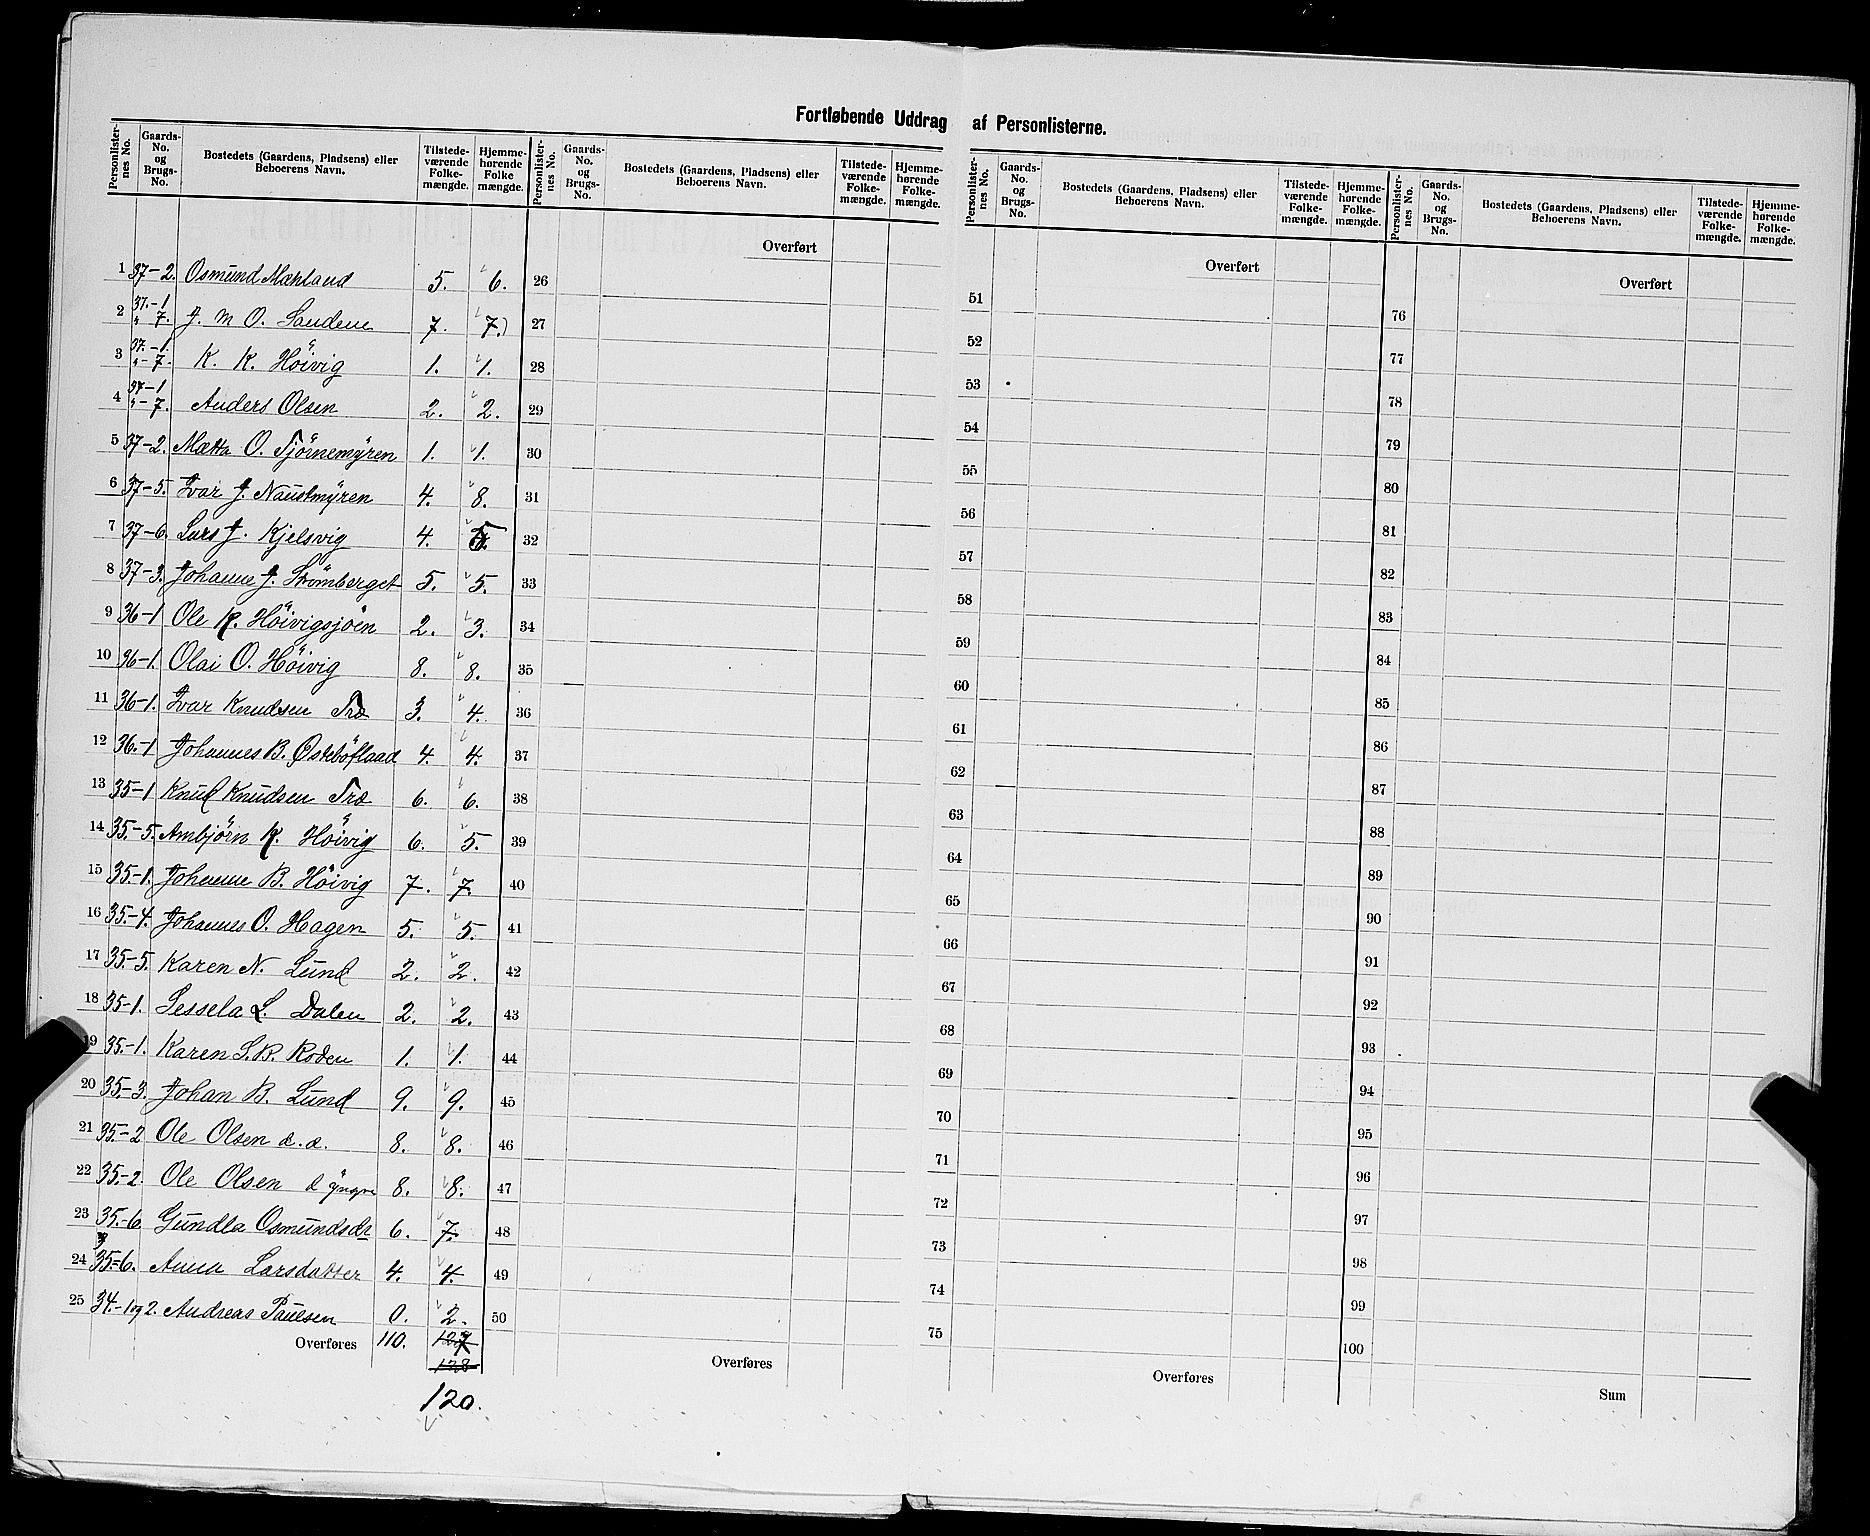 Fortløbende Uddrag af Personlisterne.
Personlisternes No. | Gaards-No. og Brugs-No. | Bostedets (Gaardens, Pladsens) eller Beboerens Navn. | Tilstedeværende Folkemængde. | Hjemmehørende Folkemængde.
1 37-2. Osmund Mæhland 5. 6.
2 37.-1 " 7. J. M O. Sandene 7. 7.)
3 37.-1. "-7. K. K. Höivig 1. 1.
4 37-1 "-7. Anders Olsen 2. 2.
5 37-2. Mætta O. Tjörnemyren 1. 1.
6 37-5. Ivar J. Naustmyren 4. 8.
7 37-6. Lars J. Kjelsvig 4.
8 37-3. Johanne J. Strömberget 5. 5.
9 36-1 Ole K. Höivigsjöen 2. 3.
10 36-1. Olai O. Höivig 8. 8.
11 36-1. Ivar Knudsen Træ 3. 4.
12 36.-1 Johannes B. Østeböflaad 4. 4.
13 35-1 Knud Knudsen Træ 6. 6.
14 35.-5. Ambjörn K. Höivig 6. 5.
15 35-1. Johanne B. Höivig 7. 7.
16 35.-4. Johannes O. Hagen 5. 5.
17 35.-5. Karen N. Lund 2. 2.
18 35-1. Sessela L. Dalen 2. 2.
19 35.-1. Karen S.B. Roden 1. 1.
20 35.-3. Johan B. Lund 9. 9.
21 35.-2 Ole Olsen d. æ. 8. 8.
22 35.-2. Ole Olsen d yngre 8. 8.
23 35.-6 Gundla Osmundsdr 6. 7.
24 35-6. Anna Larsdatter 4. 4.
25 34.-1 og 2. Andreas Paulsen 0. 2.
Overføres 110. 127
128
120.
Personlisternes No. | Gaards-No. og Brugs-No. | Bostedets (Gaardens, Pladsens) eller Beboerens Navn. | Tilstedeværende Folkemængde. | Hjemmehørende Folkemængde.
Overført
26
27
28
29
30
31
32
33
34
35
36
37
38
39
40
41
42
43
44
45
46
47
48
49
50
Overføres
Personlisternes No. | Gaards-No. og Brugs-No. | Bostedets (Gaardens, Pladsens) eller Beboerens Navn. | Tilstedeværende Folkemængde. | Hjemmehørende Folkemængde.
Overført
51
52
53
54
55
56
57
58
59
60
61
62
63
64
65
66
67
68
69
70
71
72
73
74
75
Overføres
Personlisternes No. | Gaards-No. og Brugs-No. | Bostedets (Gaardens, Pladsens) eller Beboerens Navn. | Tilstedeværende Folkemængde. | Hjemmehørende Folkemængde.
Overført
76
77
78
79
80
81
82
83
84
85
86
87
88
89
90
91
92
93
94
95
96
97
98
99
100
Sum